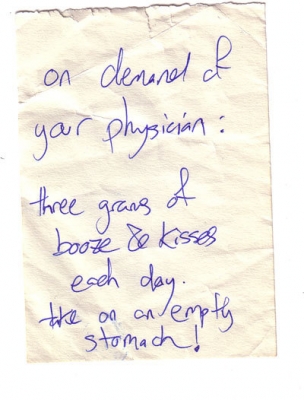 on demand of
your physician:
three grams of
booze & kisses
each day.
take on an empty
stomach!